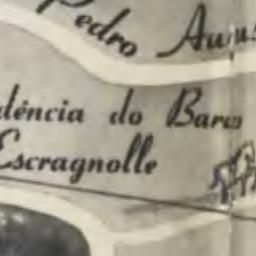 Pedro Augus
dência do Barão
Escragnolle